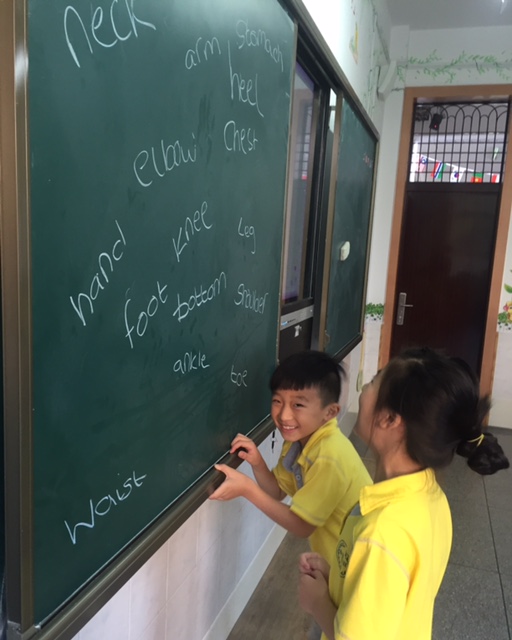 neck
arm stomach
heel
chest
elbow
knee
leg
hand
foot bottom shoulder
ankle
toe
waist